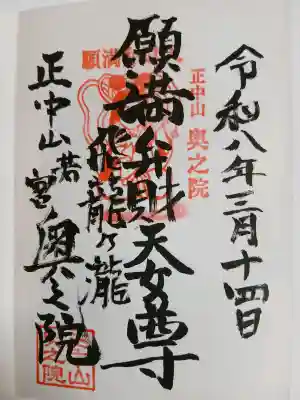 令和八年三月十四日
正中山 奥之院
願満弁財天女尊
飛龍ヶ瀧
正中山若宮奥之院